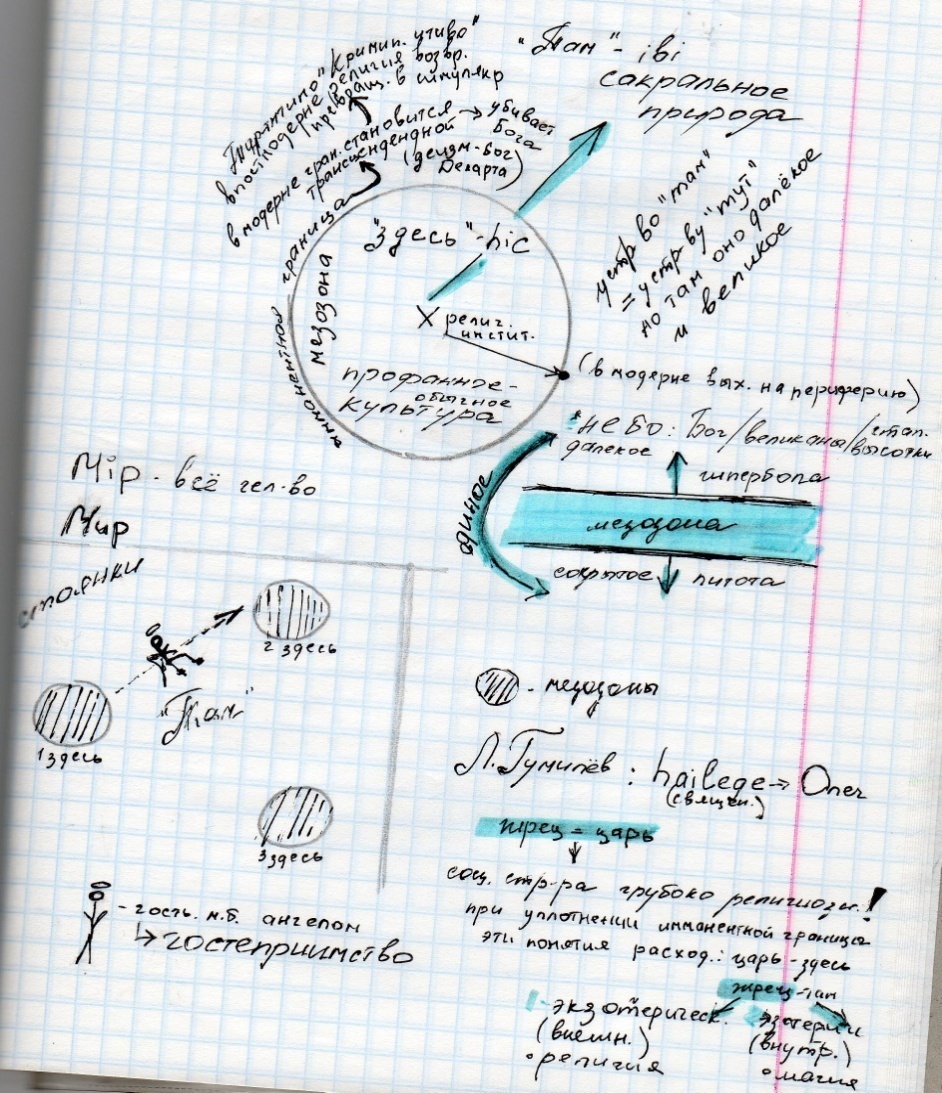 "Там" - ibi
сакральное
природа
"Кримин. чтиво"
Тарантино
в постмодерне религия возвр.
превращ. в симулякр
в модерне гран. становится → убивает
трансцендентной Бога
(деизм - Бог
Декарта)
имманентная граница
мезозона
"здесь" - hic
устр-во "там"
= устр-ву "тут"
но там оно далёкое
и великое
X религ.
инстит.
(в модерне вых. на периферию)
профанное -
обычное
культура
Мiр - всё чел-во
Мир
небо: Бог/великаны/стал.
высотки
далекое
гипербола
единое
мезозона
сокрытое литота
стоянки
2 здесь
"Там"
1 здесь
3 здесь
- мезозоны
Л. Гумилёв : hailege →
(священ.)
жрец = царь
соц. стр-ра глубоко религиозн.!
при уплотнении имманентной границы
эти понятия расход.: царь - здесь
жрец - там
- гость м.б. ангелом
↳ гостеприимство
- экзотерическ.
(внешн.)
• религия
эзотерич
(внутр.)
• магия